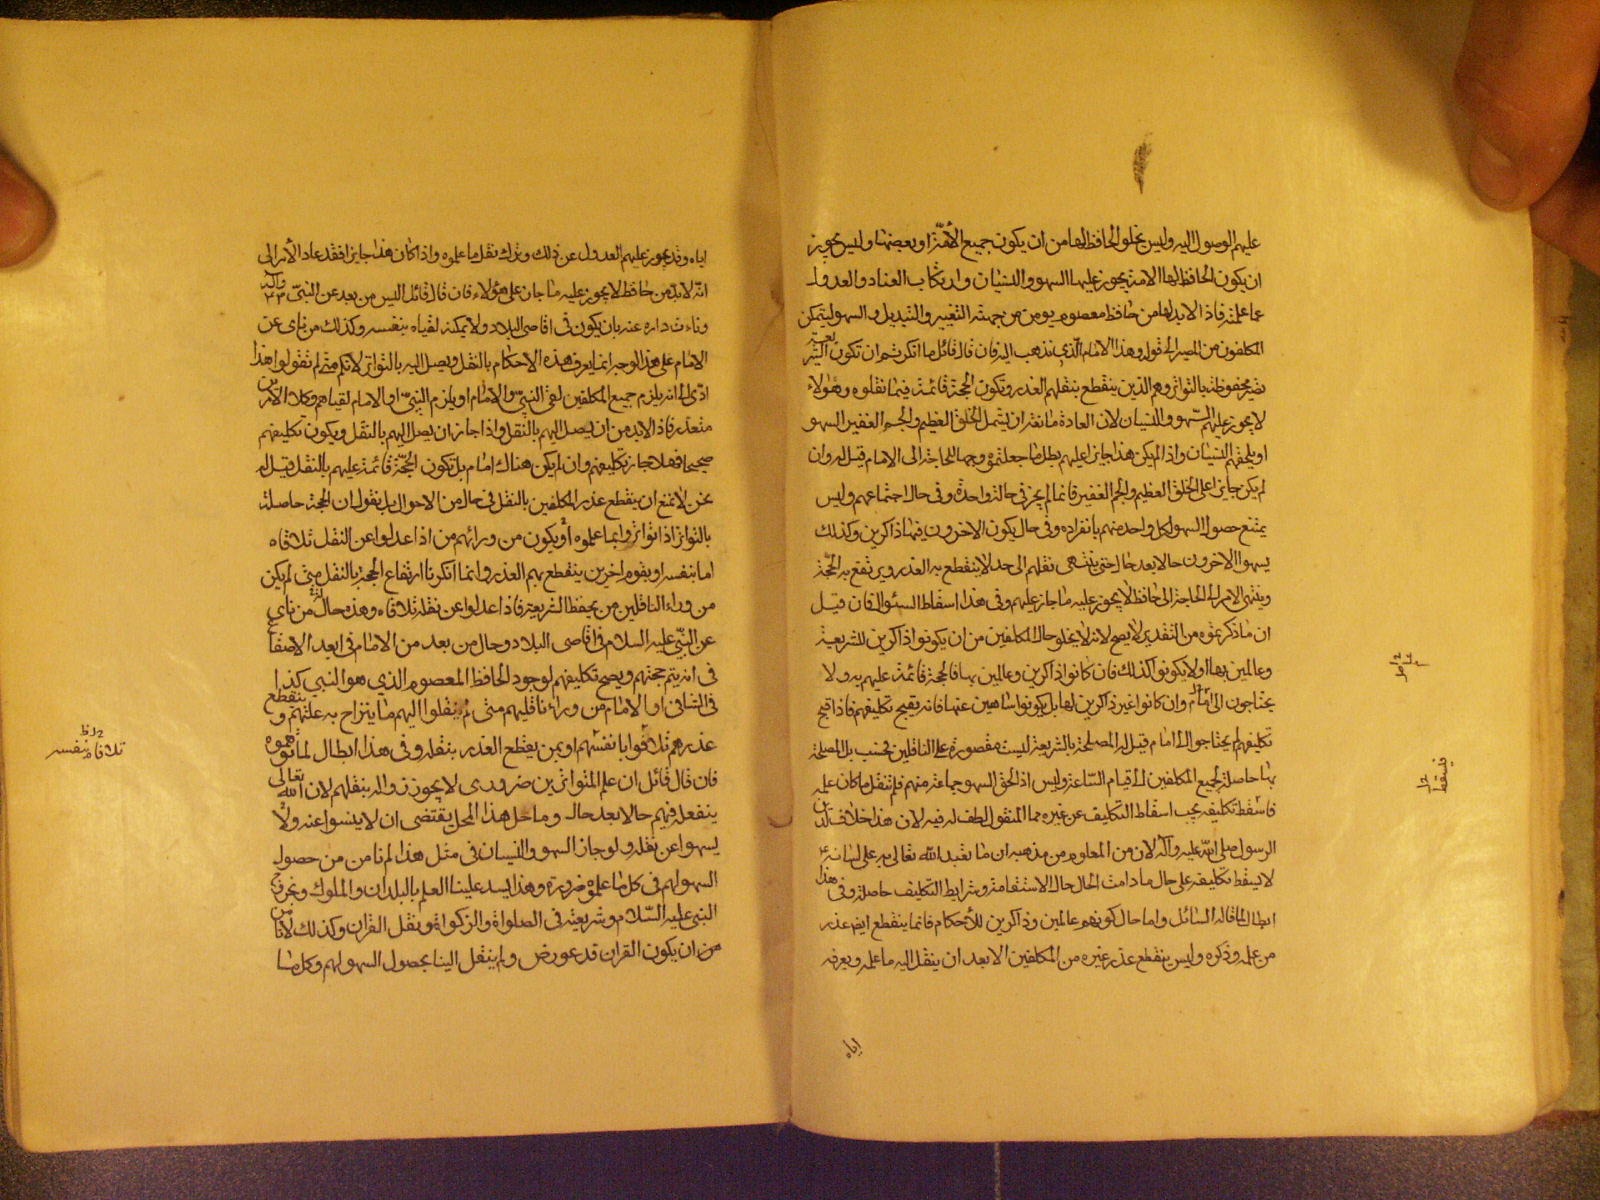 عليهم الوصول اليه وليس يخلو الحافظ لها من ان يكون جميع الأمّة او بعضها وليس يجوز
ان يكون الحافظ لها الامة يجوز عليها السهو والنسيان وارتكاب العناد والعدول
عما علمته فاذا لا بد لها من حافظ معصوم يومن من جهته التغيير والتبديل والسهو ليتمكن
المكلفون من المصير الى قوله وهذا الامام الذي نذهب اليه فان قال قائل ما انكرتم ان تكون
محفوظة بالتواتر وهم الذين ينقطع بنقلهم العذر وتكون الحجة قائمة فيما نقلوه وهؤلاء
لا يجوز عليهم السّهو والنسيان لان العادة مانعة ان يشمل الخلق العظيم والجم الغفير السهو
او يلحقهم النسيان واذا لم يكن هذا جايزا عليهم بطل ما جعلتموه وجها للحاجة الى الامام قيل له وان
لم يكن جايزا على الخلق العظيم والجم الغفير فانما لم يجز في حالة واحدة وفي حال اجتماعهم وليس
يمتنع حصول السهو لكل واحد منهم بانفراده وفي حال يكون الاخرون فيها ذاكرين وكذلك
يسهوا الاخرون حالا بعد حال حتى ينتهى نقلهم الى حد لا ينقطع به العذر ويرتفع به الحجّة
وينتهى الامر الى الحاجة الى حافظ لا يجوز عليه ما جاز عليهم وفي هذا اسقاط السئوال فان قيل
ان ما ذكرتموه من التقدير لا يصح لانه لا يخلو حال المكلفين من ان يكونوا ذاكرين للشريعة
وعالمين بها او لا يكونوا كذلك فان كانوا ذاكرين وعالمين بها فالحجة قائمة عليهم به ولا
يحتاجون الى امام وان كانوا غير ذاكرين لها بل يكونوا ساهين عنها فانه تقبح تكليفهم فاذا قبح
تكليفهم لم يحتاجوا الى امام قيل له المصلحة بالشريعة ليست مقصورة على الناقلين فحسب بل المصلحة
بها حاصلة لجميع المكلفين الى قيام السّاعة وليس اذا لحق السهو جماعة منهم فلم تنقل ما كان عليه
فاسقط تكليفه يجب اسقاط التكليف عن غيره مما المنقول لطف له فيه لان هذا خلاف
الرسول صلى الله عليه وآله لان من المعلوم من مذهبه ان ما تعبد الله تعالى به على لسانه
لا يسقط تكليفه على حال ما دامت الحال حال الاستقامة وشرايط التكليف حاصلة وفي هذا
ابطال لما قاله السائل واما حال كونهم عالمين وذاكرين للأحكام فانما ينقطع ايضا عذر
من علمه وذكره وليس ينقطع عذر غيره من المكلفين الا بعد ان ينقل اليه ما علمه ويعرفه
اياه
اياه وقد يجوز عليهم العدول عن ذلك وترك نقل ما علموه واذا كان هذا جايزا فقد عاد الأمر الى
انّه لا بد من حافظ لا يجوز عليه ما جاز على هؤلاء فان قال قائل اليس من بعد عن النبيّ
وناءت داره عنه بان يكون في اقاصى البلاد ولا يمكنه لقياه بنفسه وكذلك من نأى عن
الامام على هذا الوجه انما يعرف هذه الاحكام بالنقل ويصل اليه بالتواتر لانكم متى لم تقولوا هذا
ادّى الى انه يلزم جميع المكلفين لقى النبيّ والامام او يلزم النبيّ او الامام لقياهم وكلا الأمرين
متعذر فاذا لا بد من ان يصل اليهم بالنقل واذا جاز ان يصل اليهم بالنقل ويكون تكليفهم
صحيحا فهلا جاز تكليفهم وان لم يكن هناك امام بل تكون الحجّة قائمة عليهم بالنقل قيل له
نحن لا نمنع ان ينقطع عذر المكلفين بالنقل في حال من الاحوال بل نقول ان الحجة حاصلة
بالتواتر اذا تواتروا بما علموه او يكون من ورائهم من اذا عدلوا عن النقل تلافاه
اما بنفسه او بقوم اخرين ينقطع بهم العذر وانما انكرنا ارتفاع الحجة بالنقل متى لم يكن
من وراء الناقلين من يحفظ الشريعة فاذا عدلوا عن نقله تلافاه وهذه حال من نأى
عن النبيّ عليه السلام في اقاصى البلاد وحال من بعد من الامام في ابعد الاصقاع
في انه يتم حجتهم ويصح تكليفهم لوجود الحافظ المعصوم الذي هو النبي كذا
في الشافى او الامام من وراء ناقليهم متى لم ينقلوا اليهم ما ينزاح به علتهم وينقطع
عذرهم تلافوا بانفسهم او بمن يقطع العذر بنقله وفي هذا ابطال لما توهموه
فان قال قائل ان علم المتواترين ضرورى لا يجوز زواله بنقلهم لان الله تعالى
ينفعله فيهم حالا بعد حال وما حل هذا المحل يقتضى ان لا ينسوا عنه ولا
يسهوا عن نقله ولو جاز السهو والنسيان في مثل هذا لم نامن من حصول
السهو لهم في كل ما علموه ضرورة وهذا يسد علينا العلم بالبلدان والملوك ونحو
النبي عليه السّلام وشريعته في الصلواة والزكواة ونقل القرآن وكذلك لا نامن
من ان يكون القران قد عورض ولم ينقل الينا بحصول السهو لهم وكل ما
تلافاه بنفسه